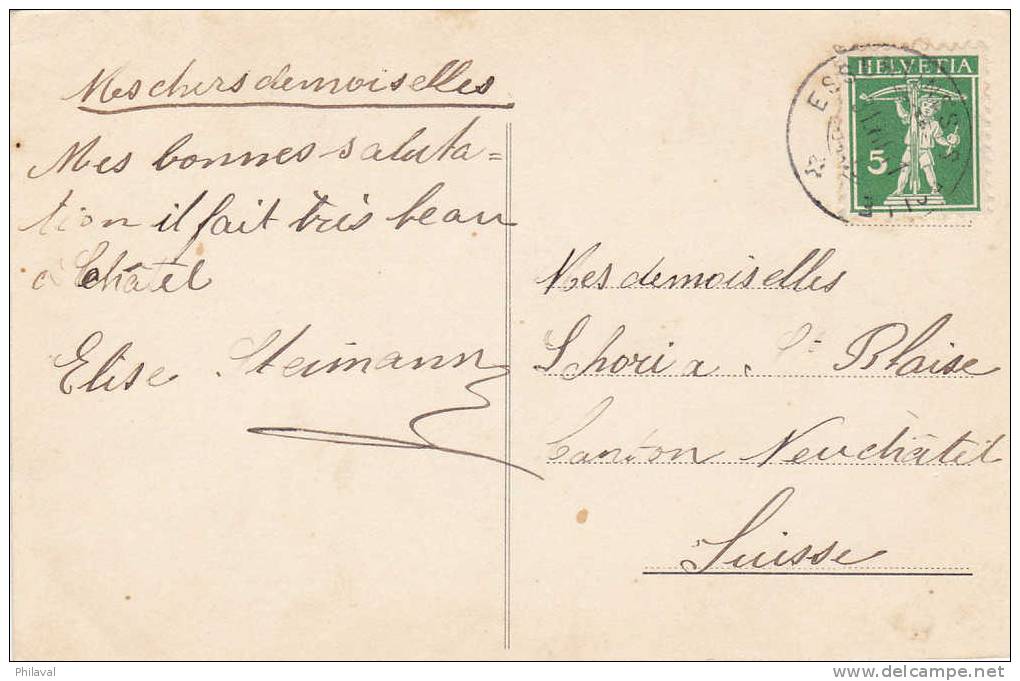 Mes chers demoiselles
Mes bonnes saluta=
tion il fait très beau
à Châtel
Elise Steimann
HELVETIA
5
Mesdemoiselles
Schori a St Blaise
Canton Neuchâtel
Suisse
Philaval
www.delcampe.net